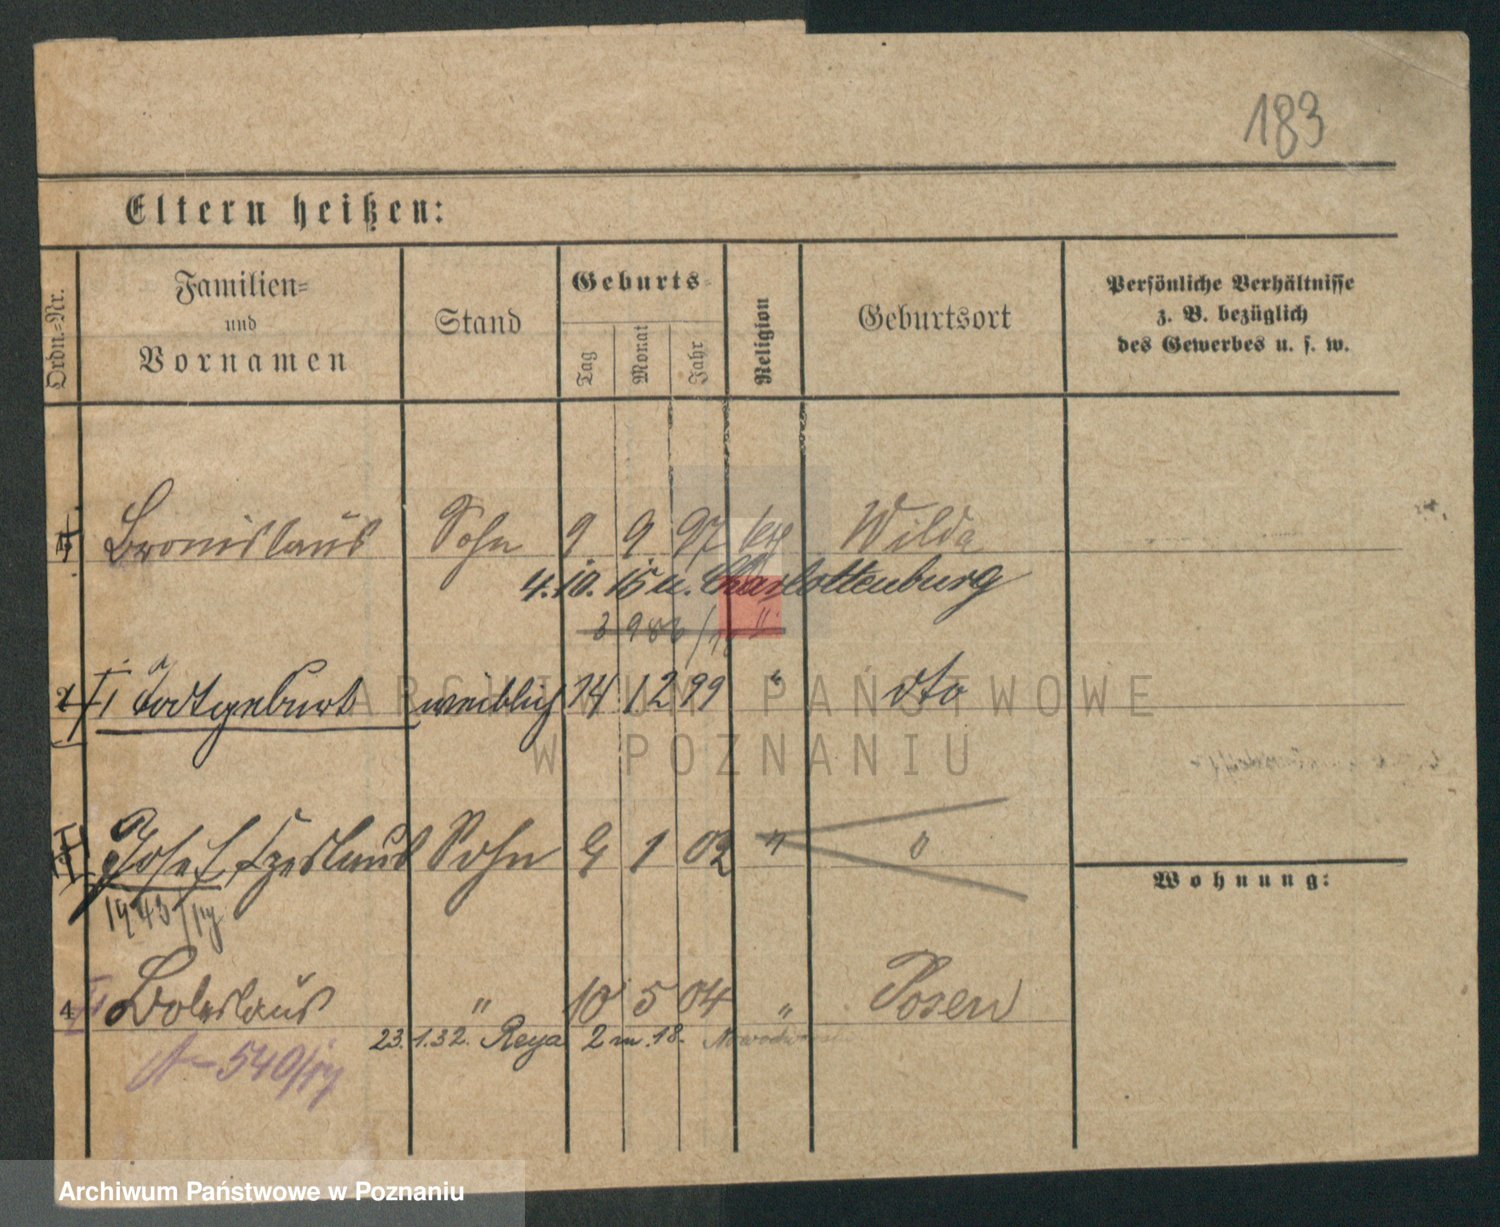 183
Eltern heißen:
Ordn.-Nr.
Familien- und Vornamen
Stand
Geburts-
Tag
Monat
Jahr
Religion
Geburtsort
Persönliche Verhältnisse
z. B. bezüglich
des Gewerbes u. s. w.
Bronislaus Sohn 9. 9. 97 Wilda
4. 10. 15 n. Charlottenburg
Todtgeburt weiblich 14 12 99 " dto
Josef, Czeslaus Sohn 9 1 02 " "
Wohnung:
4 Boleslaus " 10 5 04 " Posen
23.1.32. Reya 2 m. 18.
A-540/
ARCHIWUM PAŃSTWOWE
W POZNANIU
Archiwum Państwowe w Poznaniu